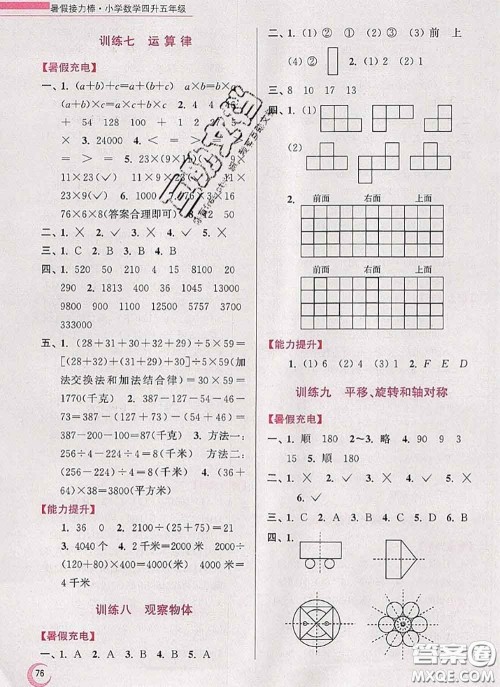 暑假接力棒·小学数学四升五年级
训练七 运算律
【暑假充电】
一、1. (a+b)+c=a+(b+c) a×b=b×a
(a×b)×c=a×(b×c) 2. 4 4
+ 54 128 100 + 2
× > = 3. 24000 4.
< = > < 5. 23×(9×11)
11×23(√) 11×(23×9)
11×23×9(√) 6. 1000
76×6×8(答案合理即可)
二、1. √ 2. × 3. × 4. √ 5. ×
三、1. C 2. A 3. B 4. B
四、1. 520 50 210 4 500 8200 20
290 2. 1813 387 136 1040
9300 900 1100 10000 37000
3330000
五、1. (28+31+30+32+29)÷5×59=
[(28+32)+(31+29)+30]÷5×59(加
法交换法和加法结合律)=30×59=
1770(千克) 2. 387-(127+73)=
387-200=187(千克)
387-127-73=187(千克)
387-200=187(千克) 3. 方法一:
256÷(4×8)=8(千米) 方法二:
256÷4÷8=8(千米) 4. (26+
74)×38=3800(平方米)
【能力提升】
1. 36 0 2. 2100÷(25+75)=21
3. 4040个 4. 2千米=2000米
2000÷
(120+80)×400=4000(米) 4000米=
4千米
训练八 观察物体
【暑假充电】
一、1. √ 2. √ 3. × 4. √ 5. ×
76
二、1. ② ② ① ③ 2. 前 右 前 上
3. (1) 8 (2) ④ ① ③ ②
三、8 10 17 13
四、1. (1)
(2)
2. 前面 右面 上面
前面 右面 上面
【能力提升】
1. (1) 6 (2) 4 (3) 1 2. F E D
训练九 平移、旋转和轴对称
【暑假充电】
一、1. 顺 180 2~3. 略 4. 9 9 3
15 5. 顺 180
二、1. × 2. √ 3. × 4. √ 5. √
6. √
三、1. C 2. B 3. C 4. A 5. D 6. A
四、1.
答案圈
MXQE.COM